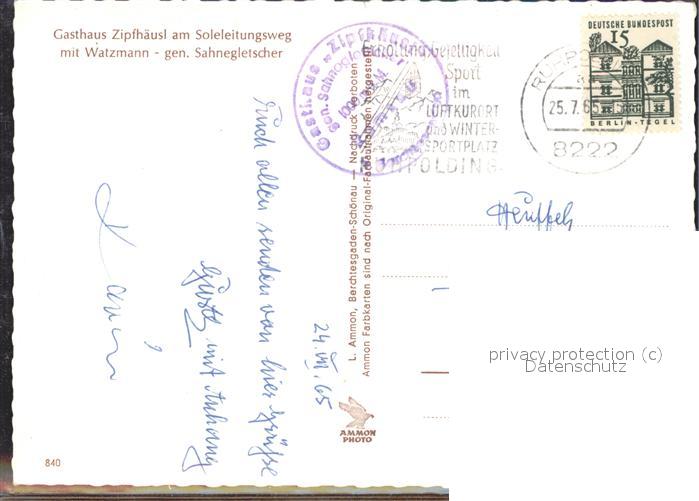 Gasthaus Zipfhäusl am Soleleitungsweg
mit Watzmann - gen. Sahnegletscher
Gasthaus "Zipfhäusl"
gen. Sahnegletscher
Erholung, Geselligkeit
Sport
im
LUFTKURORT
und WINTER-
SPORTPLATZ
RUHPOLDING
25.7.65
8222
DEUTSCHE BUNDESPOST
15
BERLIN-TEGEL
Euch allen senden von hier Grüße
Gustl mit Anhang
24.VII.65
L. Ammon, Berchtesgaden-Schönau — Nachdruck verboten
Ammon Farbkarten sind nach Original-Farbaufnahmen hergestellt
AMMON
PHOTO
840
privacy protection (c)
Datenschutz